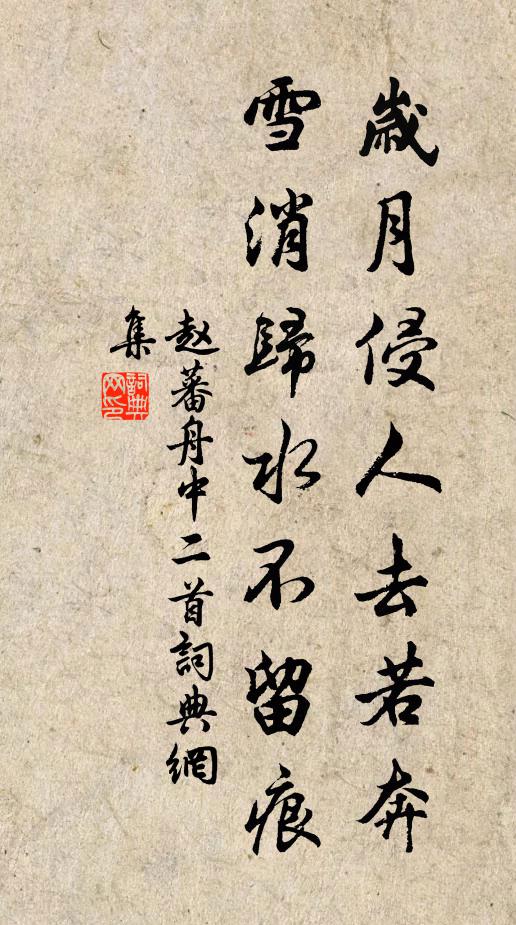 歲月侵人去若奔
雪消歸水不留痕
赵蕃舟中二首詞典網
集
詞典網印